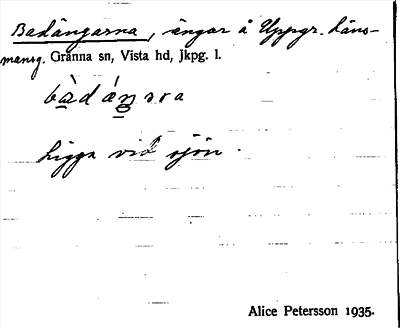 Badängarna, ängar å Uppgr. Läns-
mansg. Gränna sn, Vista hd, Jkpg. l.
Ligga vid sjön.
Alice Petersson 1935.